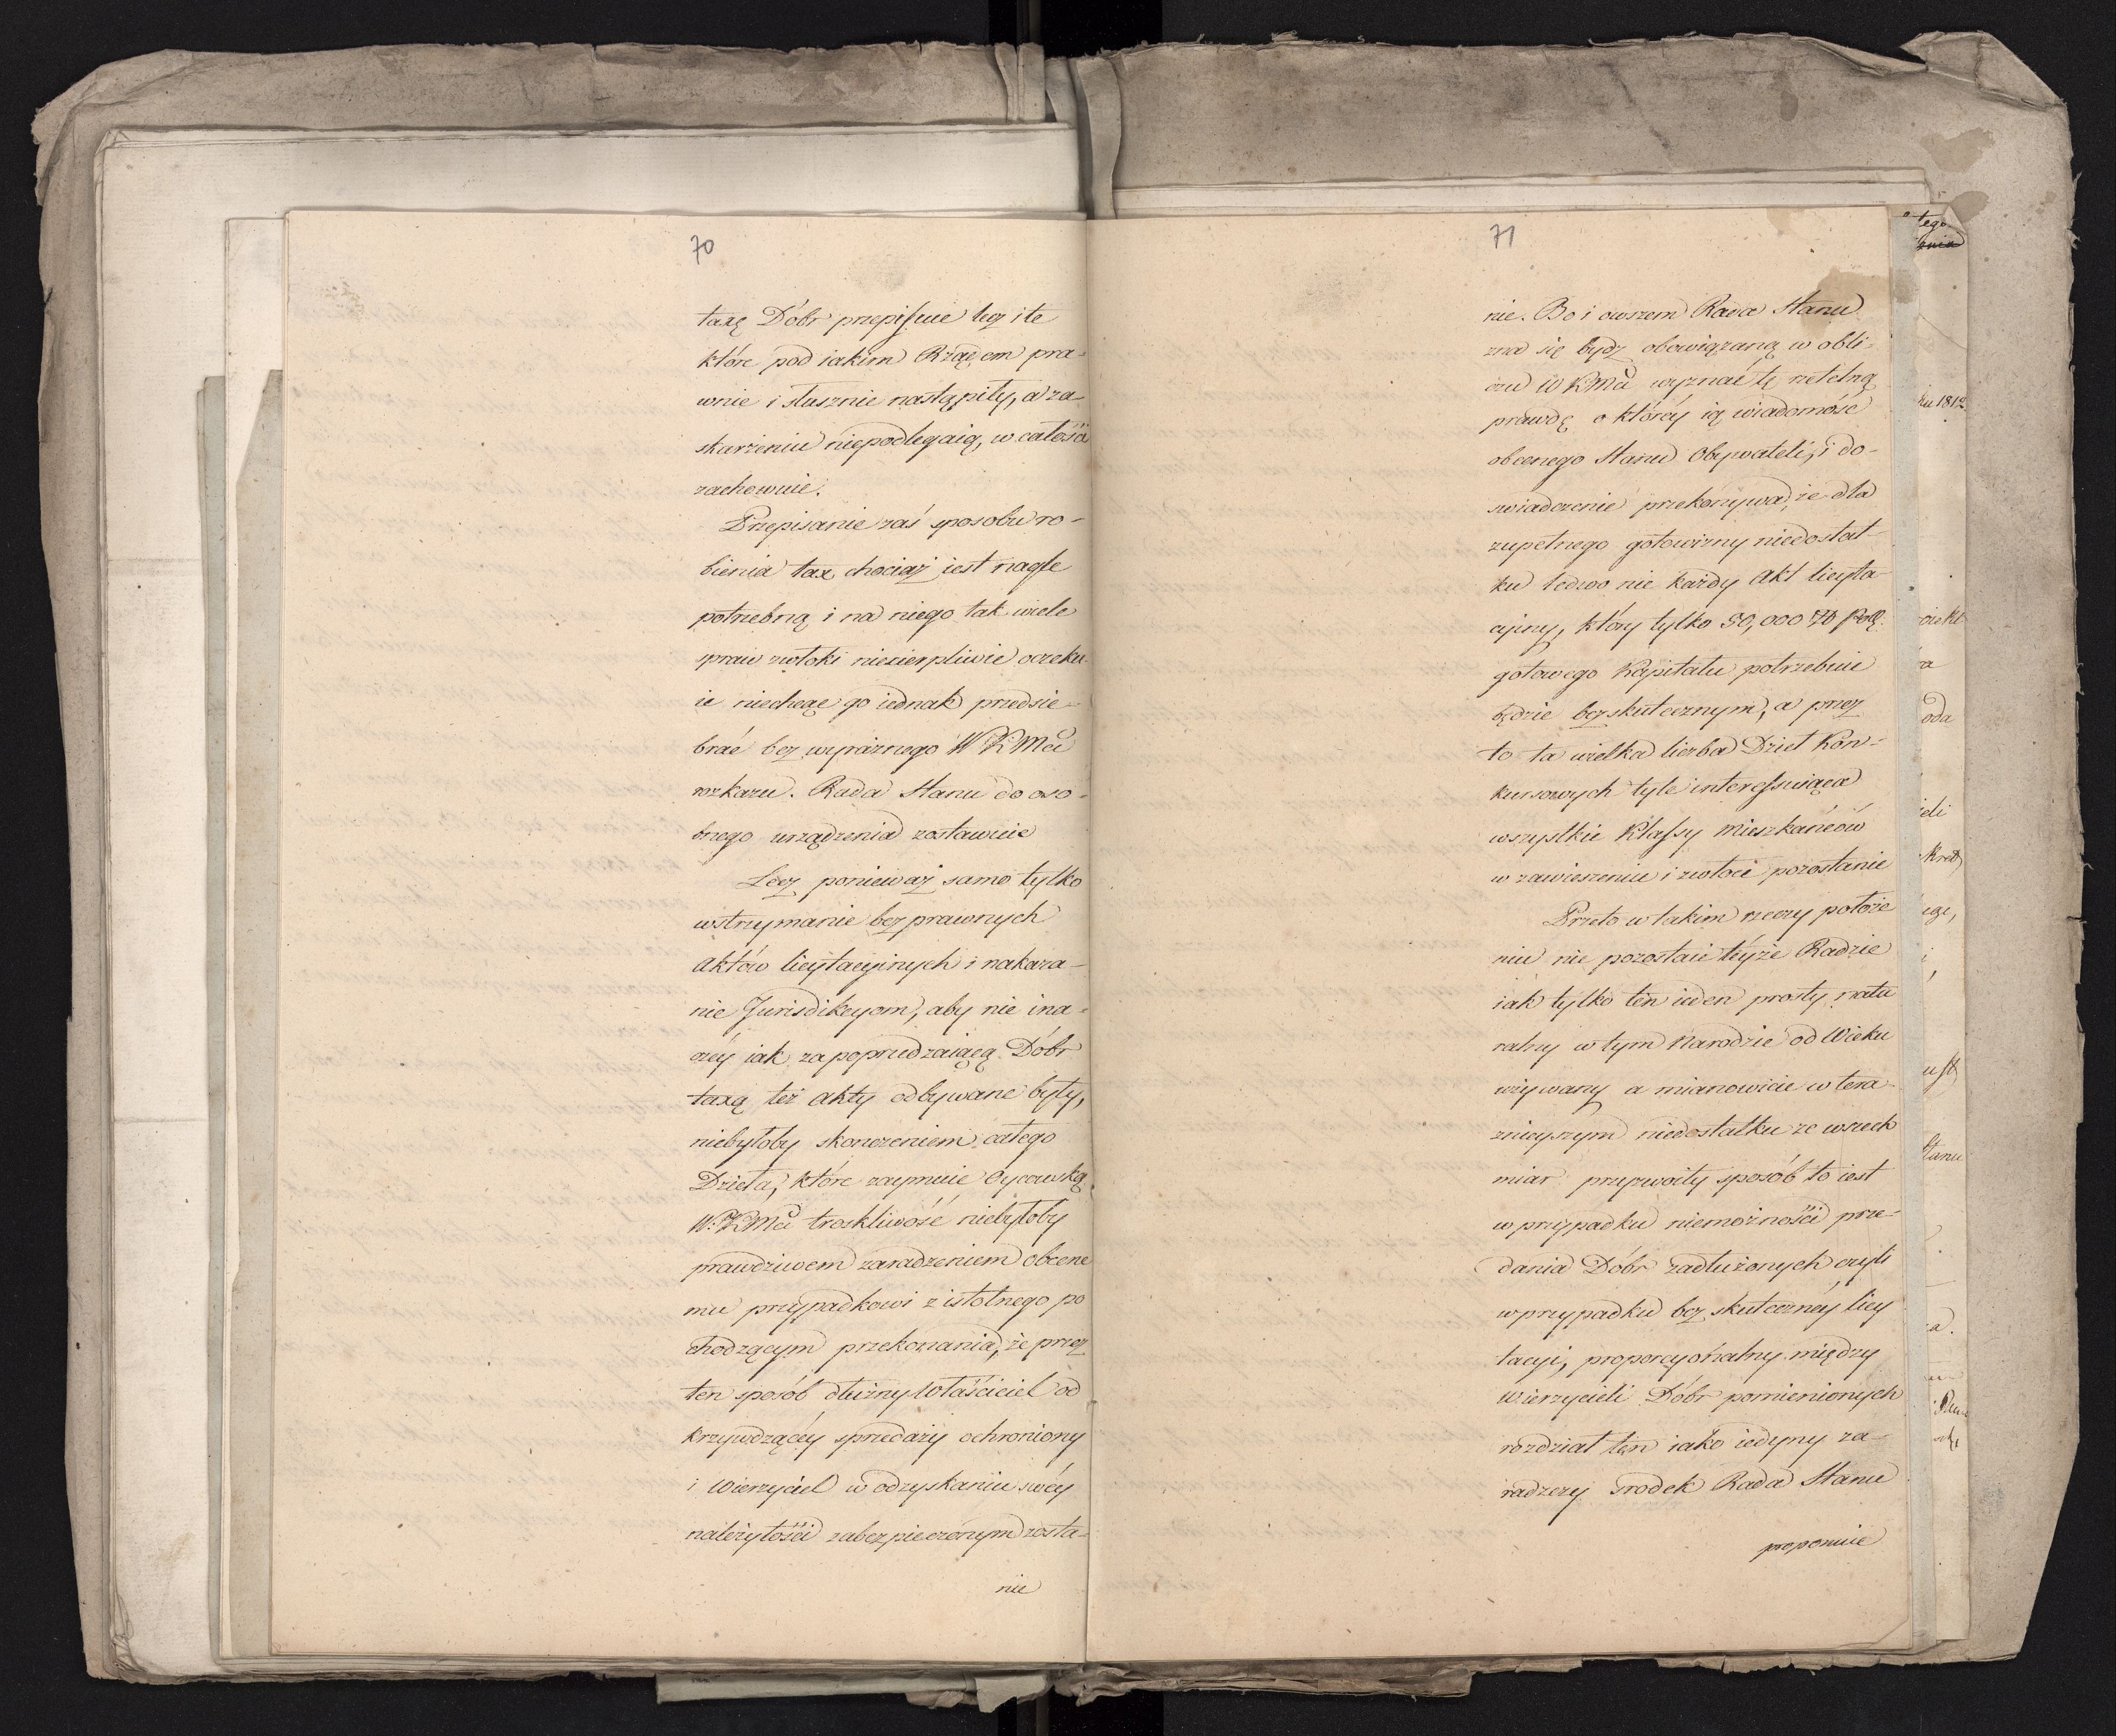 70
taxę Dóbr przepisuie lecz i te
które pod iakim Rządem pra-
wnie i słusznie nastąpiły, a za-
skarżeniu niepodlegaią, w całości
zachowuie.
Przepisanie zaś sposobu ro-
bienia tax chociaż iest nagle
potrzebną i na niego tak wiele
spraw zwłoki niecierpliwie oczeku
ie niechcąc go iednak przedsie-
brać bez wyraźnego W K Mci
rozkazu. Rada Stanu do oso-
bnego urządzenia zostawuie
Lecz ponieważ samo tylko
wstrzymanie bezprawnych
Aktów licytacyinych i nakaza-
nie Jurisdikcyom, aby nie ina-
czéy iak za poprzedzaiącą Dóbr
taxą też Akty odbywane były,
niebyłoby skonczeniem całego
Dzieła, które zaymuie Oycowską
W: K Mci troskliwość niebyłoby
prawdziwem zaradzeniem obecne
mu przypadkowi z istotnego po
chodzącym przekonania, że przez
ten sposób dłużny Właściciel od
krzywdzącéy sprzedaży ochroniony
i Wierzyciel w odzyskaniu swéy
należytości zabezpieczonym zosta-
nie
71
nie. Bo i owszem Rada Stanu
zna się bydź obowiązaną w obli-
czu W K Mci wyznać tę rzetelną
prawdę o któréy ią wiadomość
obcenego Stanu Obywateli, i do-
swiadczenie przekonywa, że dla
zupełnego gotowizny niedostat-
ku ledwo nie każdy Akt licyta
cyiny, który tylko 50,000 Zł Pol.
gotowego Kapitału potrzebuie
będzie bezskutecznym, a przez
to ta wielka liczba Dzieł Kon-
kursowych tyle interessuiąca
wszystkie Klassy Mieszkańców
w zawieszeniu i zwłoce pozostanie
Przeto w takim rzeczy położe
niu nie pozostaie téyże Radzie
iak tylko ten ieden prosty natu
ralny w tym Narodzie od Wieku
używany a mianowicie w tera-
znieyszym niedostatku ze wszech
miar przyzwoity sposób to iest
w przypadku niemożności prze-
dania Dóbr zadłużonych czyli
w przypadku bez skutecznéy licy
tacyi, proporcyonalny między
Wierzycieli Dóbr pomienionych
rozdział ten iako iedyny za-
radczy srodek Rada Stanu
proponuie
tego
ku 1812
oda
Stanu